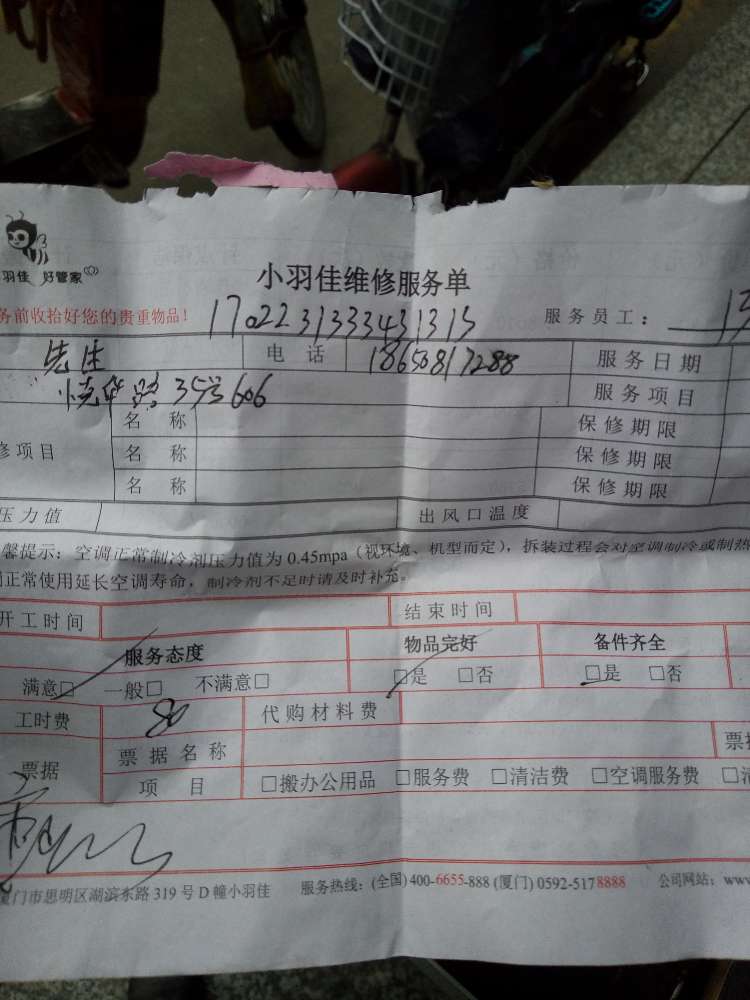 羽佳 好管家
小羽佳维修服务单
务前收拾好您的贵重物品！
170223133431315
服务员工：
先生 电话 18650817288 服务日期
35号606 服务项目
名称 保修期限
修项目 名称 保修期限
名称 保修期限
压力值 出风口温度
馨提示：空调正常制冷剂压力值为0.45mpa（视环境、机型而定），拆装过程会对空调制冷或制热
正常使用延长空调寿命，制冷剂不足时请及时补充。
开工时间 结束时间
服务态度 物品完好 备件齐全
满意□ 一般□ 不满意□ □是 □否 □是 □否
工时费 80 代购材料费
票据 票据名称 票据
项目 □搬办公用品 □服务费 □清洁费 □空调服务费
厦门市思明区湖滨东路319号D幢小羽佳 服务热线：(全国)400-6655-888 (厦门) 0592-5178888 公司网站：www